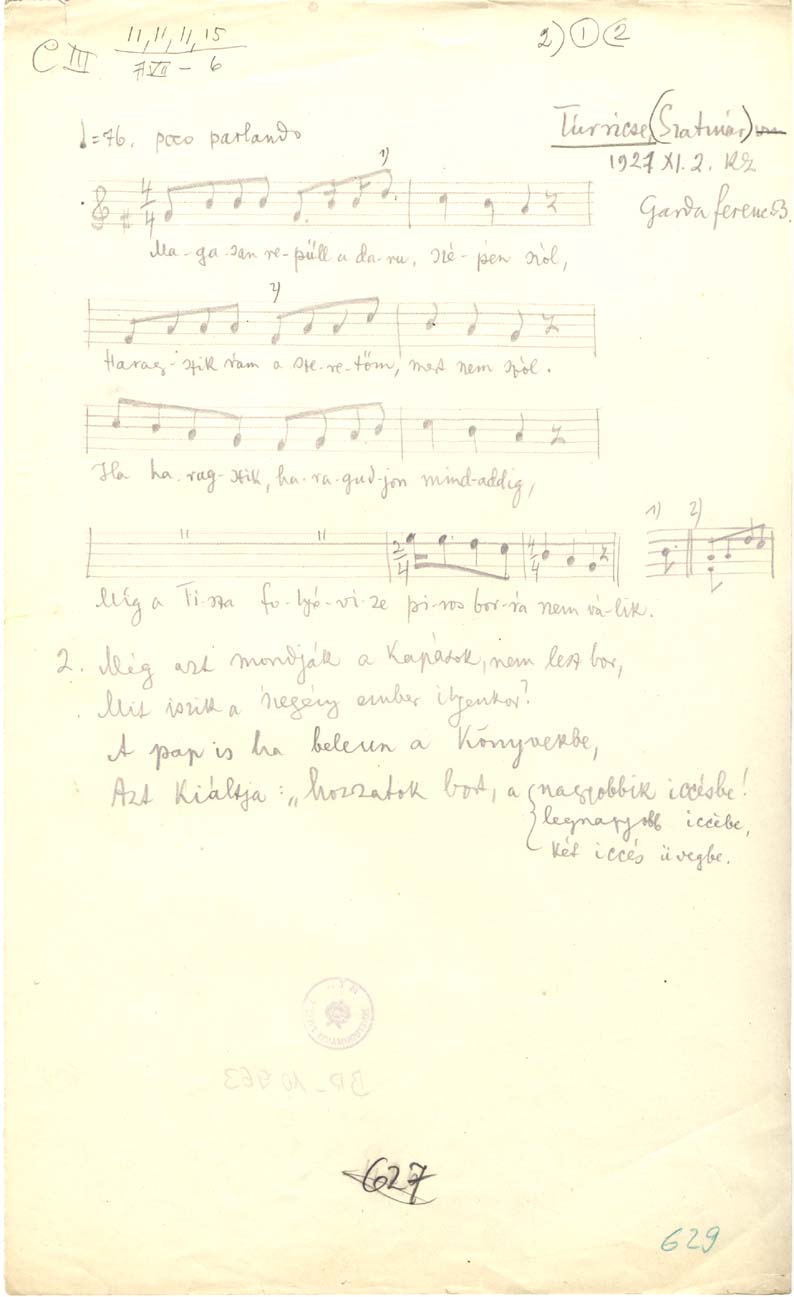 C III 11, 11, 11, 15
7 VII – 6
2) 1 2
♩=76. poco parlando
Túrricse, (Szatmár)
1927 XI. 2. KZ
Garda Ferenc B.
1)
Ma-ga-san re-pűll a da-ru, szé-pen szól,
2)
Harag-szik rám a sze-re-tőm, mert nem szól.
Ha ha-rag-szik, ha-ra-gud-jon mind-addig,
1) 2)
Míg a Ti-sza fo-lyó-vi-ze pi-ros bor-rá nem vá-lik.
2. Még azt mondják a kapások, nem lesz bor,
Mit iszik a szegény ember ilyenkor?
A pap is ha beleun a könyvekbe,
Azt kiáltja: „hozzatok bort, a nagyobbik iccésbe!
legnagyobb iccébe,
két iccés üvegbe.
BR_10 963
627
629